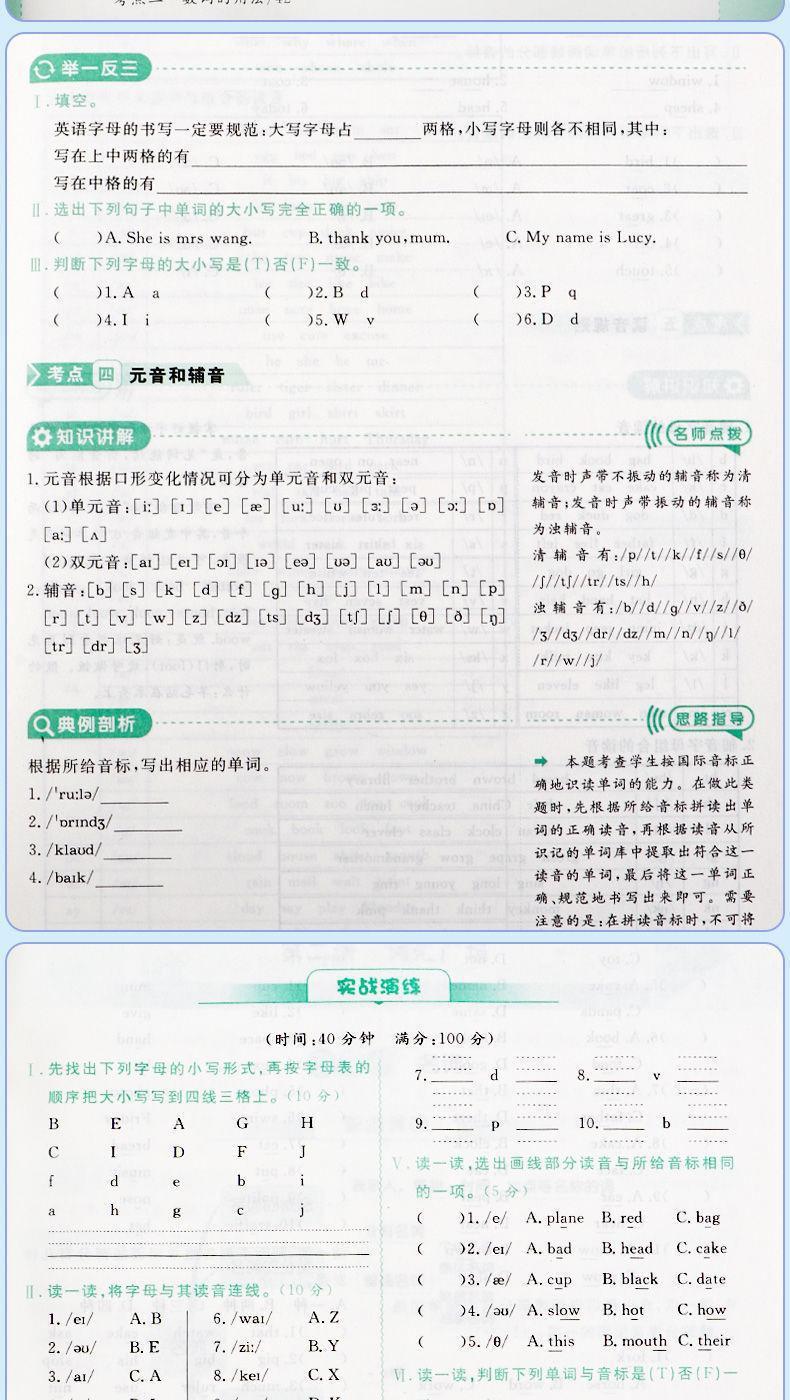 举一反三
Ⅰ.填空。
英语字母的书写一定要规范:大写字母占______两格,小写字母则各不相同,其中:
写在上中两格的有
写在中格的有
Ⅱ.选出下列句子中单词的大小写完全正确的一项。
( )A. She is mrs wang. B. thank you,mum. C. My name is Lucy.
Ⅲ.判断下列字母的大小写是(T)否(F)一致。
( )1. A a ( )2. B d ( )3. P q
( )4. I i ( )5. W v ( )6. D d
考点 四 元音和辅音
知识讲解
1. 元音根据口形变化情况可分为单元音和双元音:
(1)单元音:[iː] [ɪ] [e] [æ] [uː] [ʊ] [ɜː] [ə] [ɔː] [ɒ]
[ɑː] [ʌ]
(2)双元音:[aɪ] [eɪ] [ɔɪ] [ɪə] [eə] [ʊə] [aʊ] [əʊ]
2. 辅音:[b] [s] [k] [d] [f] [g] [h] [j] [l] [m] [n] [p]
[r] [t] [v] [w] [z] [dz] [ts] [dʒ] [tʃ] [ʃ] [θ] [ð] [ŋ]
[tr] [dr] [ʒ]
名师点拨
发音时声带不振动的辅音称为清
辅音;发音时声带振动的辅音称
为浊辅音。
清辅音有:/p//t//k//f//s//θ/
/ʃ//tʃ//tr//ts//h/
浊辅音有:/b//d//g//v//z//ð/
/ʒ//dʒ//dr//dz//m//n//ŋ//l/
/r//w//j/
典例剖析
根据所给音标,写出相应的单词。
1. /ˈruːlə/
2. /ˈɒrɪndʒ/
3. /klaʊd/
4. /baɪk/
思路指导
➡ 本题考查学生按国际音标正
确地识读单词的能力。在做此类
题时,先根据所给音标拼读出单
词的正确读音,再根据读音从所
识记的单词库中提取出符合这一
读音的单词,最后将这一单词正
确、规范地书写出来即可。需要
注意的是:在拼读音标时,不可将
实战演练
(时间:40分钟 满分:100分)
Ⅰ.先找出下列字母的小写形式,再按字母表的
顺序把大小写写到四线三格上。(10分)
B E A G H
C I D F J
f d e b i
a h g c j
Ⅱ.读一读,将字母与其读音连线。(10分)
1. /eɪ/ A. B 6. /waɪ/ A. Z
2. /əʊ/ B. E 7. /ziː/ B. Y
3. /aɪ/ C. A 8. /keɪ/ C. X
7. ______ d ______ 8. ______ v ______
9. ______ p ______ 10. ______ b ______
Ⅴ.读一读,选出画线部分读音与所给音标相同
的一项。(5分)
( )1. /e/ A. plane B. red C. bag
( )2. /eɪ/ A. bad B. head C. cake
( )3. /æ/ A. cup B. black C. date
( )4. /əʊ/ A. slow B. hot C. how
( )5. /θ/ A. this B. mouth C. their
Ⅵ.读一读,判断下列单词与音标是(T)否(F)一